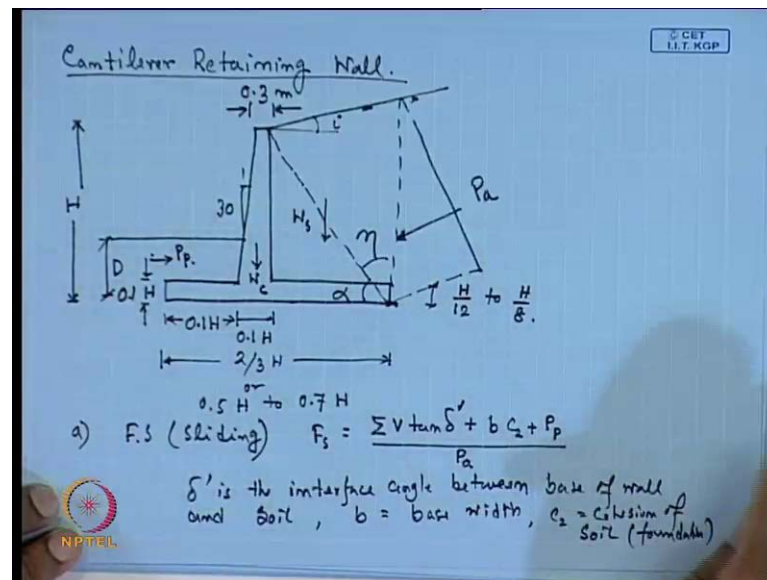 © CET
I.I.T. KGP
Cantilever Retaining Wall.
0.3 m
i
H
30
Ws
η
Pa
D
Pp.
Wc
α
0.1 H
H/12 to H/8.
0.1H
0.1 H
2/3 H
or
0.5 H to 0.7 H
a) F.S (Sliding) Fs = ΣV tan δ' + b C2 + Pp / Pa
δ' is the interface angle between base of wall
and soil, b = base width, C2 = Cohesion of
Soil (foundation)
NPTEL